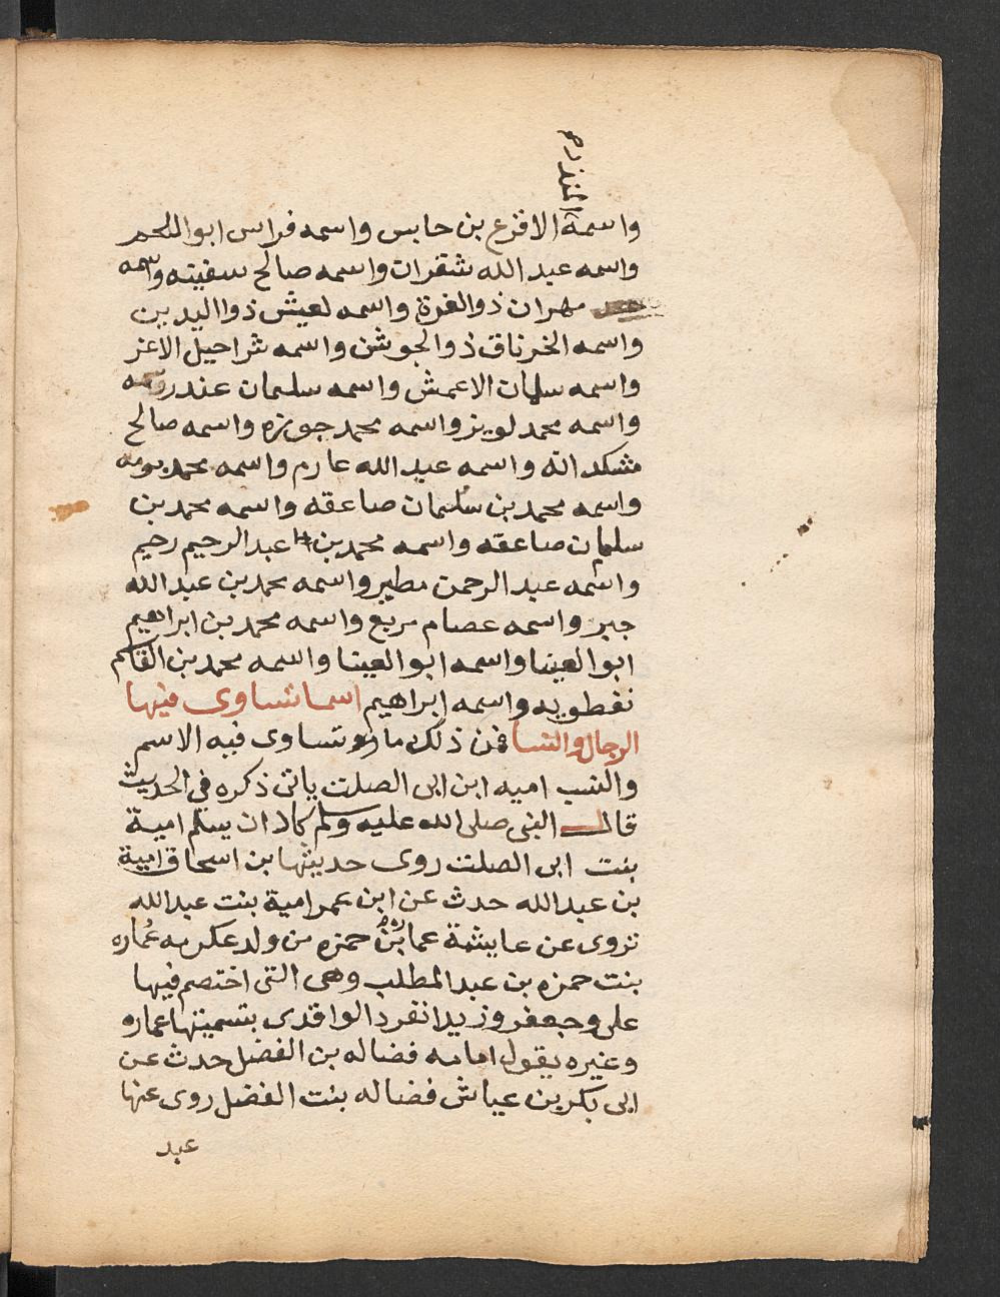 المنذر صح
واسمه الاقرع بن حابس واسمه فراس ابو اللحم
واسمه عبد الله شقران واسمه صالح سفينه واسمه
مهران ذوالغرة واسمه لعيش ذوااليدين
واسمه الخرناق ذوالجوشن واسمه شراحيل الاغر
واسمه سلمان الاعمش واسمه سليمان عندر واسمه
واسمه محمد لوين واسمه محمد جوزه واسمه صالح
مشكدانه واسمه عبد الله عارم واسمه محمد بومه
واسمه محمد بن سليمان صاعقه واسمه محمد بن
سليمان صاعقه واسمه محمد بن عبد الرحيم رحيم
واسمه عبد الرحمن مطير واسمه محمد بن عبد الله
جبر واسمه عصام مربع واسمه محمد بن ابراهيم
ابو العينا واسمه ابو العينا واسمه محمد بن القاسم
نفطويه واسمه ابراهيم اسما تساوى فيها
الرجال والنسا فمن ذلك ما تساوى فيه الاسم
والنسب اميه ابن ابى الصلت ياتى ذكره في الحديث
قال النبى صلى الله عليه وسلم كاد ان يسلم امية
بنت ابى الصلت روى حديثها بن اسحاق امية
بن عبد الله حدث عن ابن عمر امية بنت عبد الله
تروى عن عايشة عماره بن حمزه من ولد عكرمه عُماره
بنت حمزه بن عبد المطلب وهى التى اختصم فيها
على وجعفر وزيد انفرد الواقدى بتسميتها عماره
وغيره يقول امامه فضاله بن الفضل حدث عن
ابى بكر بن عياش فضاله بنت الفضل روى عنها
عبد